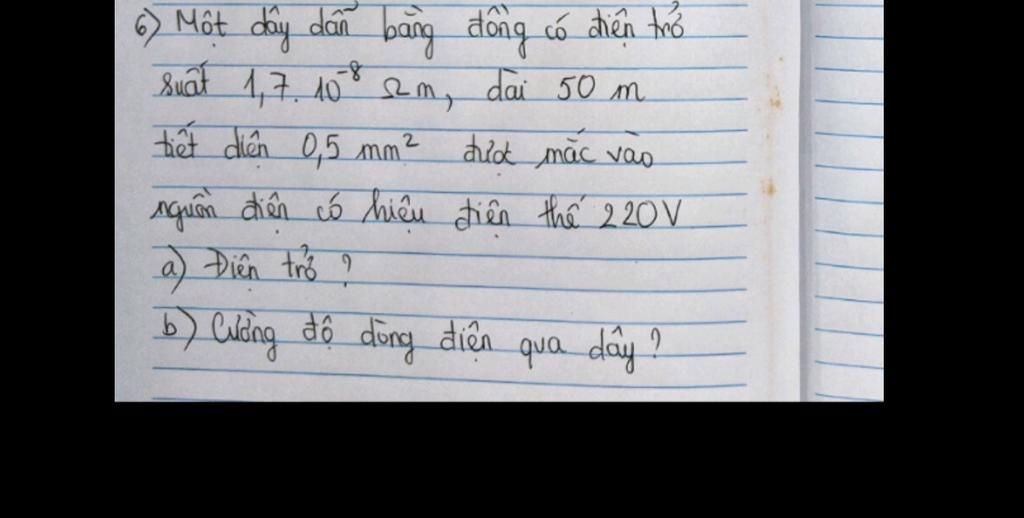 6) Một dây dẫn bằng đồng có điện trở
suất 1,7.10⁻⁸ Ωm, dài 50 m
tiết diện 0,5 mm² được mắc vào
nguồn điện có hiệu điện thế 220V
a) Điện trở ?
b) Cường độ dòng điện qua dây ?